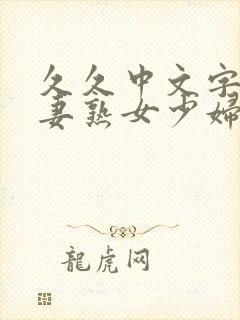 久久中文字
妻熟女少婦
龍虎网